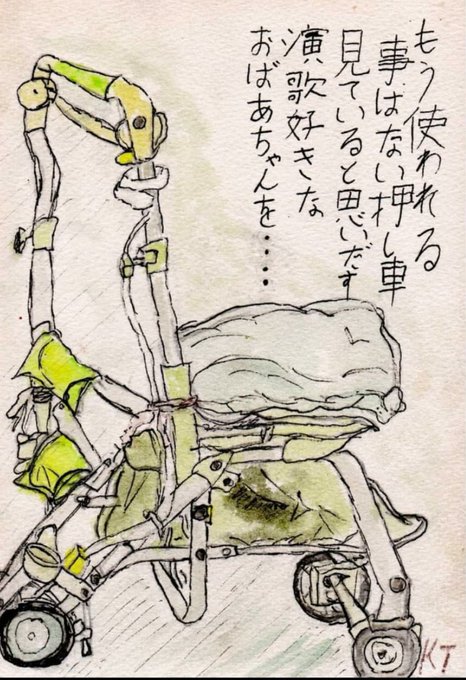 もう使われる
事はない押し車
見ていると思いだす
演歌好きな
おばあちゃんを・・・・
KT